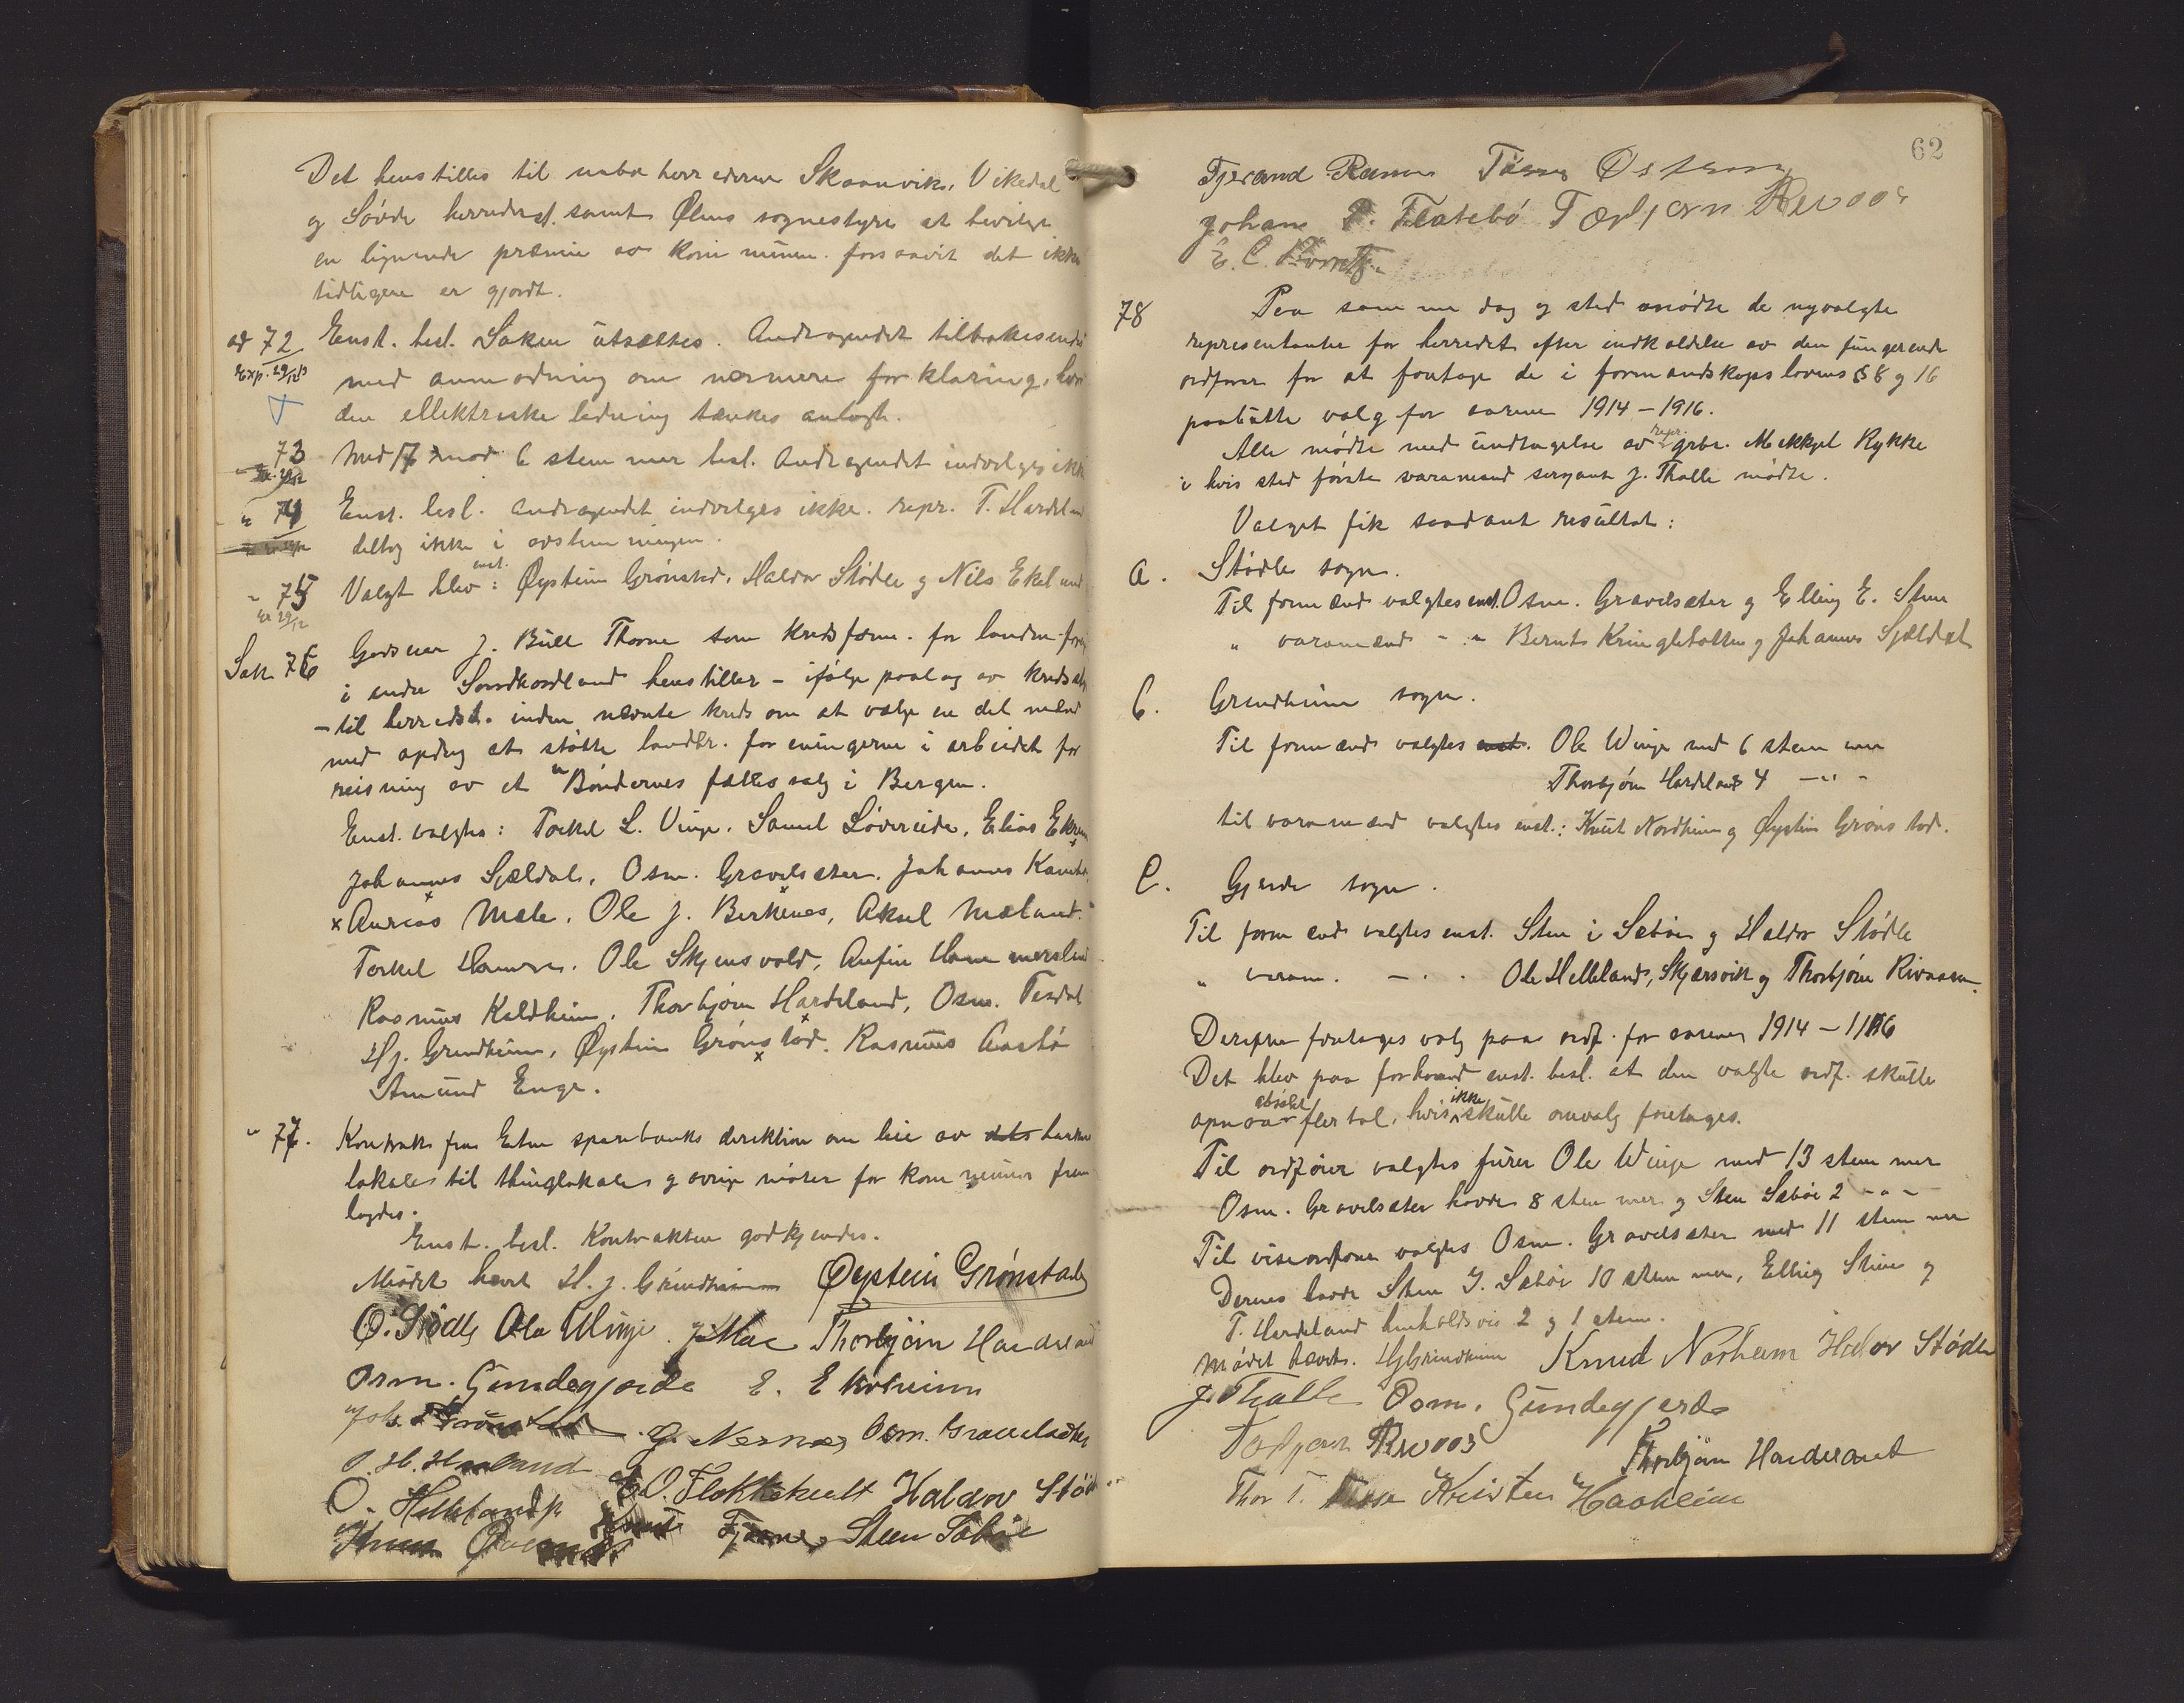 Det henstilles til nabo herrederne Skaanvik, Vikedal
og Søvde herredsst. samt Ølens sognestyre at bevilge
en lignende præmie av kommunen forsaavit det ikke
tidligere er gjordt.
ad 72 Enst. besl. Saken utsættes. Andragendet tilbakesendes
Exp. 29/12 13 med anmodning om nærmere forklaring, hvor
den ellektriske ledning tænkes anlagt.
" 73 Med 17 mod 6 stemmer besl. Andragendet indvilges ikke
" 74 Enst. besl. andragendet indvilges ikke. repr. T. Hardeland
deltog ikke i avstemningen.
" 75 Valgt blev enst.: Øystein Grønstad, Haldor Stødle og Nils Ekeland
29/12
Sak 76 Godseier J. Bull Thorne som kredsform. for landm.foren
i indre Søndhordland henstiller - ifølge paalæg av kreds
- til herredst. inden nævnte kreds om at vælge en del mænd
med opdrag at støtte landbr. foreningerne i arbeidet for
reisning av et "Bøndernes fælles salg i Bergen.
Enst. valgtes: Torkel L. Vinge. Samuel Løvereide, Elias Ekrem
Johannes Sjældal, Osm. Gravelsæter. Johannes
x Anreas Mæle. Ole J. Birkenes, Aksel Mæland.
Torkel Hamre. Ole Skjensvold, Anfin Hammersland
Rasmus Kaldheim. Thorbjørn Hardeland, Osm. Tesdal
H J. Grindheim, Øystein Grønstad. Rasmus Aastø
Amund Enge.
" 77. Kontrakt fra Etne sparebanks direktion om leie av dets bank
lokale til thinglokale og øvrige møter for kommunen frem
lagdes.
Enst. besl. Kontrakten godkjendes.
Mødet hævet H. J. Grindheim Øystein Grønstad
O. Stødle Ole Winge Thorbjørn Hardeland
Osm. Gundegjerde E. Ekrheim
Joh. Grønstad G. Nernes Osm. Gravelsæter
O. H. Haaland
O. Helleland O. Flokketvelt Haldor Stødle
Fjøsne Steen Sæbøe
62
Tjerand Ramn Tørres Østrem
Johan P. Flatebø Torbjørn Rivaas
78 Paa samme dag og sted mødte de nyvalgte
representanter for herredet efter indkaldelse av den fungerende
ordfører for at foretage de i formandskapslovens § 8 og 16
paabudte valg for aarene 1914 - 1916.
Alle mødte med undtagelse av repr. grbr. Mikkjel Rykke
i hvis sted første varamand sersjant J. Thalle mødte.
Valget fik saadant resultat:
a. Stødle sogn.
Til formænd valgtes enst. Osm. Gravelsæter og Elling E. Stene
" varamænd - " - Bernt Kringlebotten og Johannes Sjældal
b. Grindheim sogn.
Til formænd valgtes enst. Ole Winge med 6 stemmer
Thorbjørn Hardeland 4 - " -
til varamænd valgtes enst.: Knut Nordheim og Øystein Grønstad.
C. Gjerde sogn.
Til formænd valgtes enst. Sten i Sæbøe og Haldor Stødle
" varam. - " - Ole Helleland, Skjærsvik og Thorbjørn Rivaasen.
Derefter foretages valg paa ordf. for aarene 1914 - 1916
Det blev paa forhaand enst. besl. at den valgte ordf. skulle
opnaa absolut flertal, hvis ikke skulle omvalg foretages.
Til ordfører valgtes furer Ole Winge med 13 stemmer
Osm. Gravelsæter havde 8 stemmer og Sten Sæbøe 2 - " -
Til viseordfører valgtes Osm. Gravelsæter med 11 stemmer
Dernæst havde Sten I. Sæbøe 10 stemmer, Elling Stene og
T. Hardeland henholdsvis 2 og 1 stem.
Mødet hævet. HJGrindheim Knud Norheim Haldor Stødle
J. Thalle Osm. Gundegjerde
Torbjørn Rivaas Thorbjørn Hardeland
Thor T. Kristen Haaheim